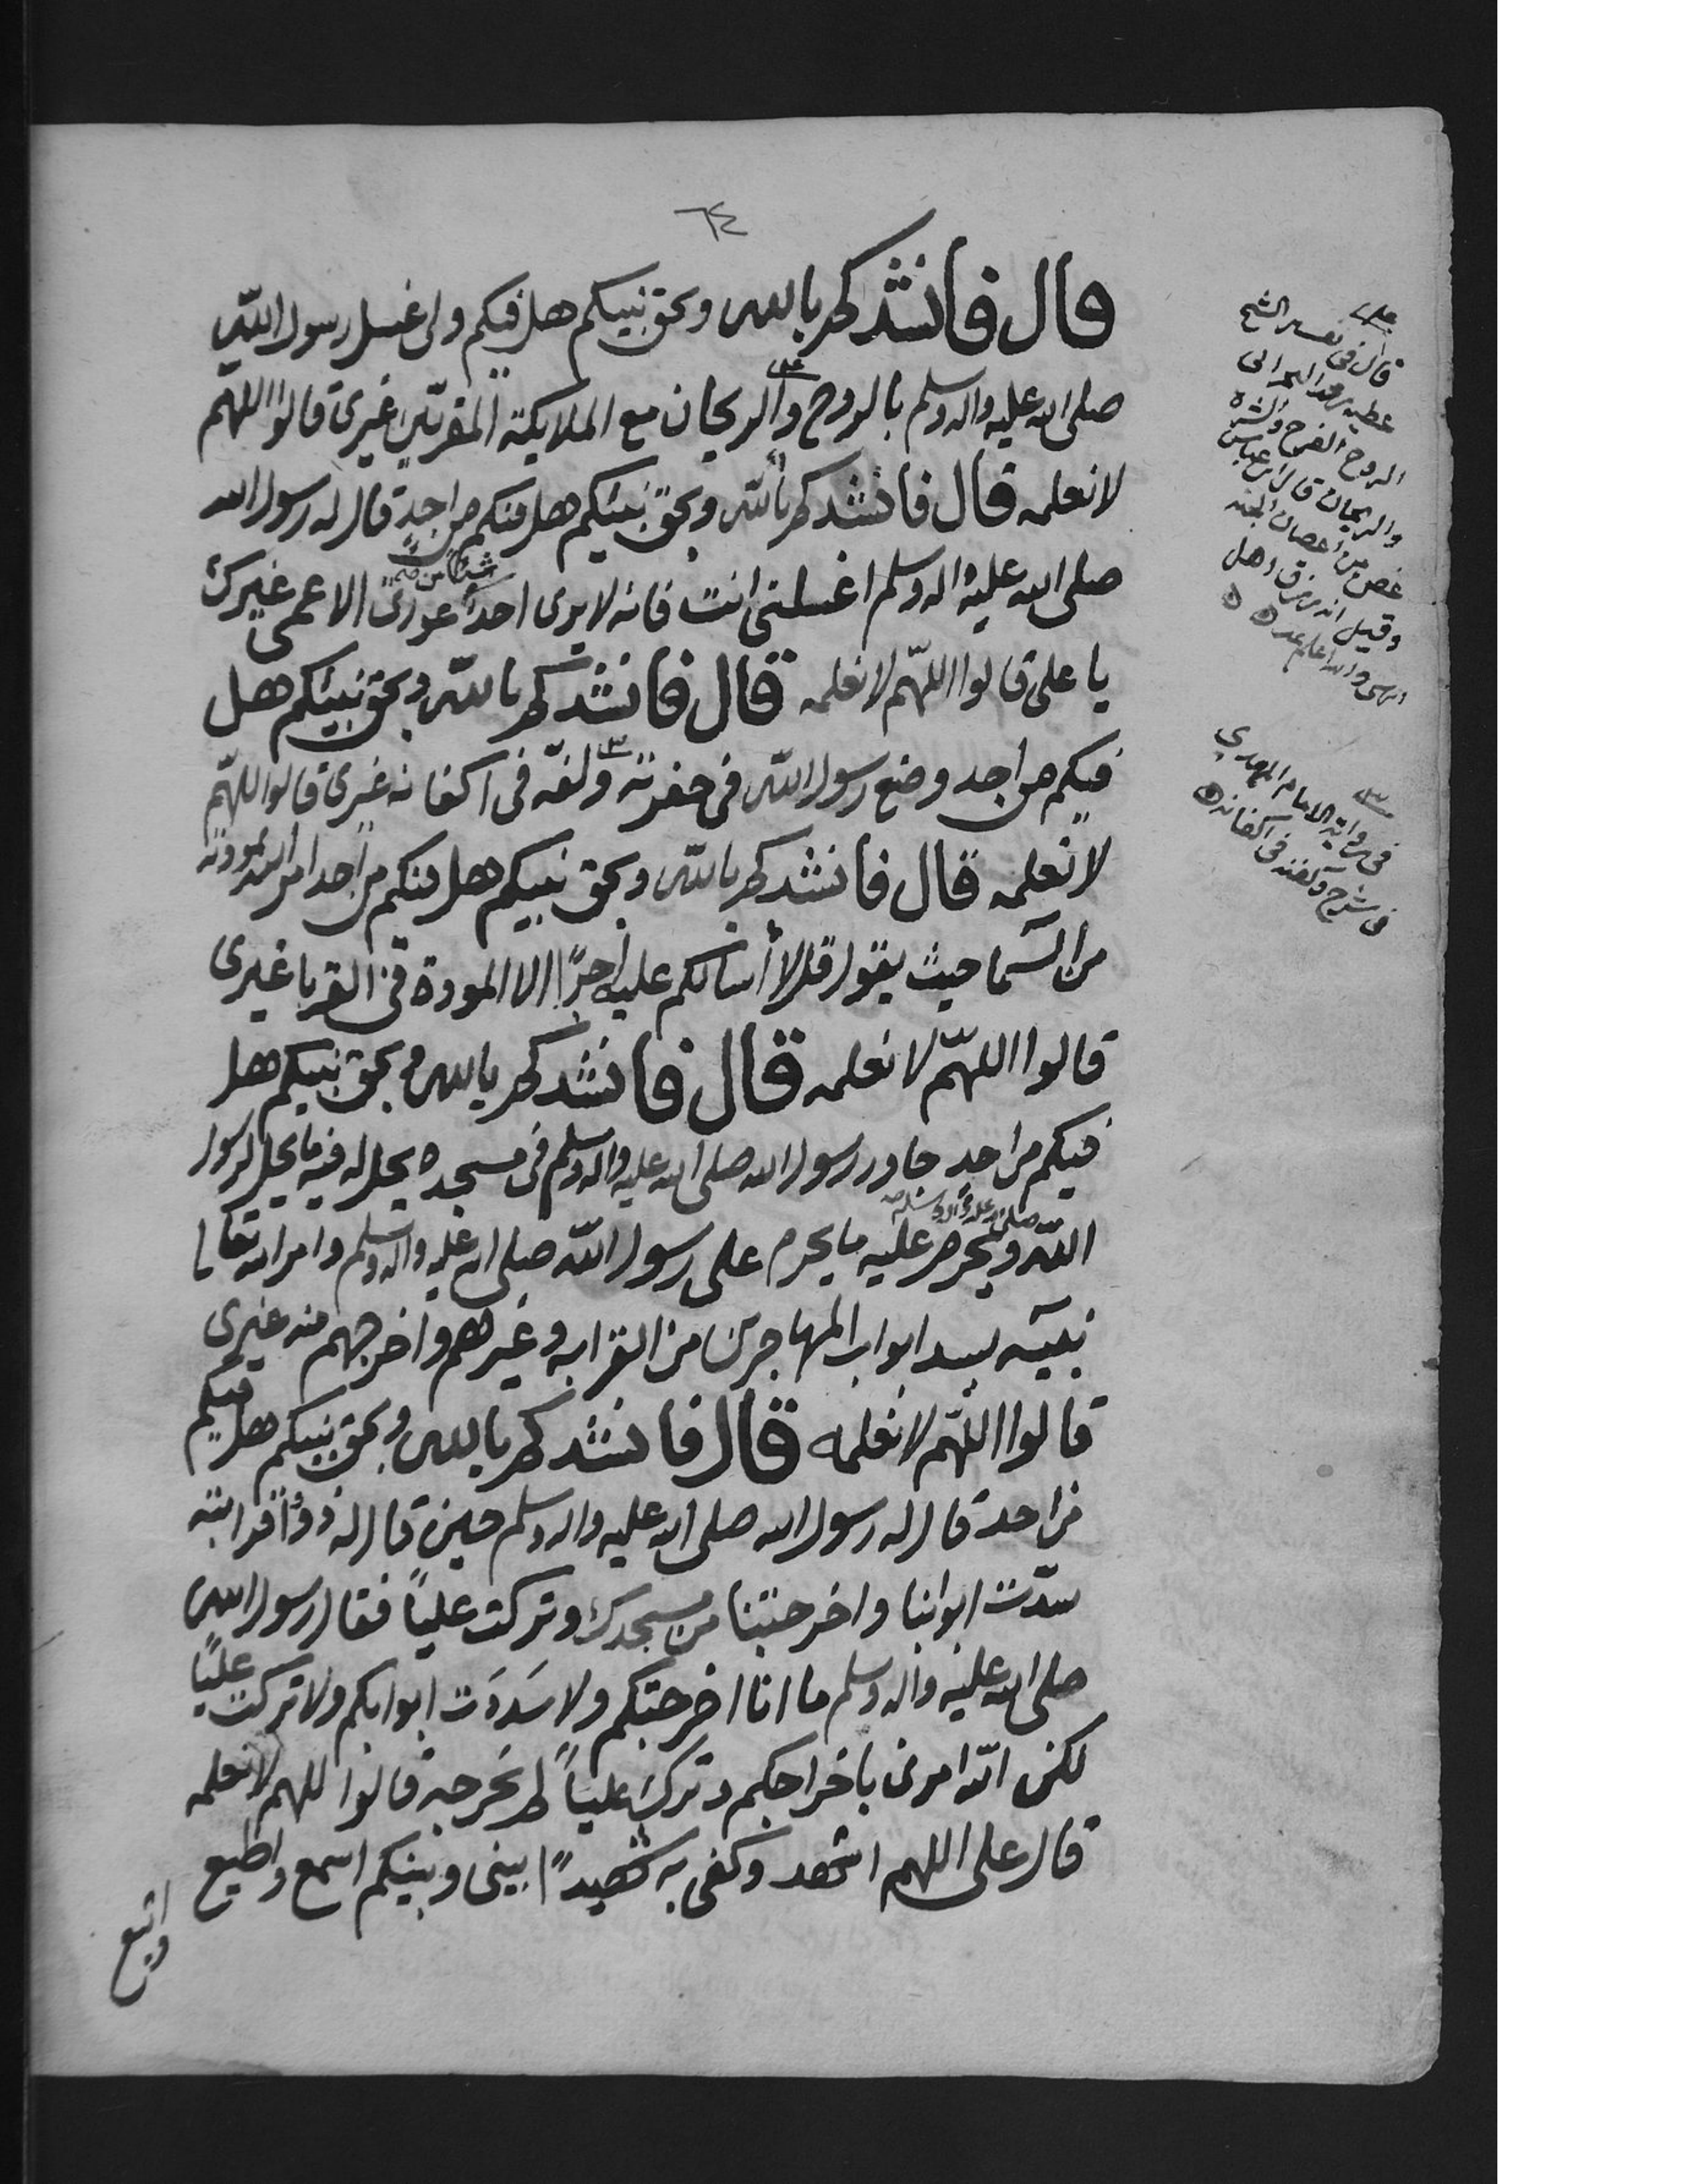 ٦٤
قال فانشدكم بالله وبحق نبيكم هل فيكم ولي غسل رسول الله
صلى الله عليه واله وسلم بالروح والريحان مع الملايكة المقربين غيري قالوا اللهم
لا نعلمه قال فانشدكم بالله وبحق نبيكم هل فيكم من احد قال له رسول الله
صلى الله عليه واله وسلم اغسلني انت فانه لا يرى احدا شيئا من عورتي الا عمي غيرك
يا علي قالوا اللهم لا نعلمه قال فانشدكم بالله وبحق نبيكم هل
فيكم من احد وضع رسول الله في حفرته ولفه في اكفانه غيري قالوا اللهم
لا نعلمه قال فانشدكم بالله وبحق نبيكم هل منكم من احد امر الله بمودته
من السما حيث يقول قل لا أسالكم عليه اجرًا الا المودة في القربا غيري
قالوا اللهم لا نعلمه قال فانشدكم بالله وبحق نبيكم هل
فيكم من احد جاور رسول الله صلى الله عليه واله وسلم في مسجده يحل له فيه ما يحل لرسول
الله صلى الله عليه واله وسلم ويحرم عليه ما يحرم على رسول الله صلى الله عليه واله وسلم وامر الله تعالى
نبيه بسد ابواب المهاجرين من القرابه وغيرهم واخرجهم منه غيري
قالوا اللهم لا نعلمه قال فانشدكم بالله وبحق نبيكم هل فيكم
من احد قال له رسول الله صلى الله عليه واله وسلم حين قال له ذووا قرابته
سدّت ابوابنا واخرجتنا من مسجدك وتركت علياً فقال رسول الله
صلى الله عليه واله وسلم ما انا اخرجتكم ولا سَدَدَت ابوابكم ولا تركت علياً
لكن الله امرني باخراجكم وترك علياً لم يخرجه قالوا اللهم لا نعلمه
قال علي اللهم اشهد وكفى به شهيداً بيني وبينكم اسمع واطيع
واتبع
قال في تفسير الشيخ
عطيه بن محمد النجراني
الروح الفرح
والريحان قال ابن عباس
غصن من اغصان الجنه
وقيل انه رزق اهل
والله اعلم
في رواية الامام المهدي
في شرح وكفنه في اكفانه